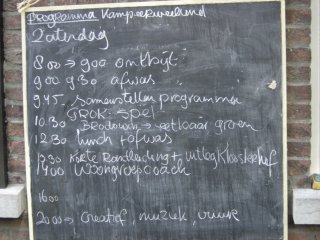 programma Kampeerweekend
Zaterdag
8.00 → 9.00 ontbijt
9.00 9.30 afwas
9.45 samenstellen programma
GROK: spel
10.30 Broodnodig → eetbaar groen
12.30 lunch + afwas
13.30 korte Rondleiding + uitleg Kloosterhof
1400 Woongroepcoach
1600
20.00 → Creatief, muziek, vuur